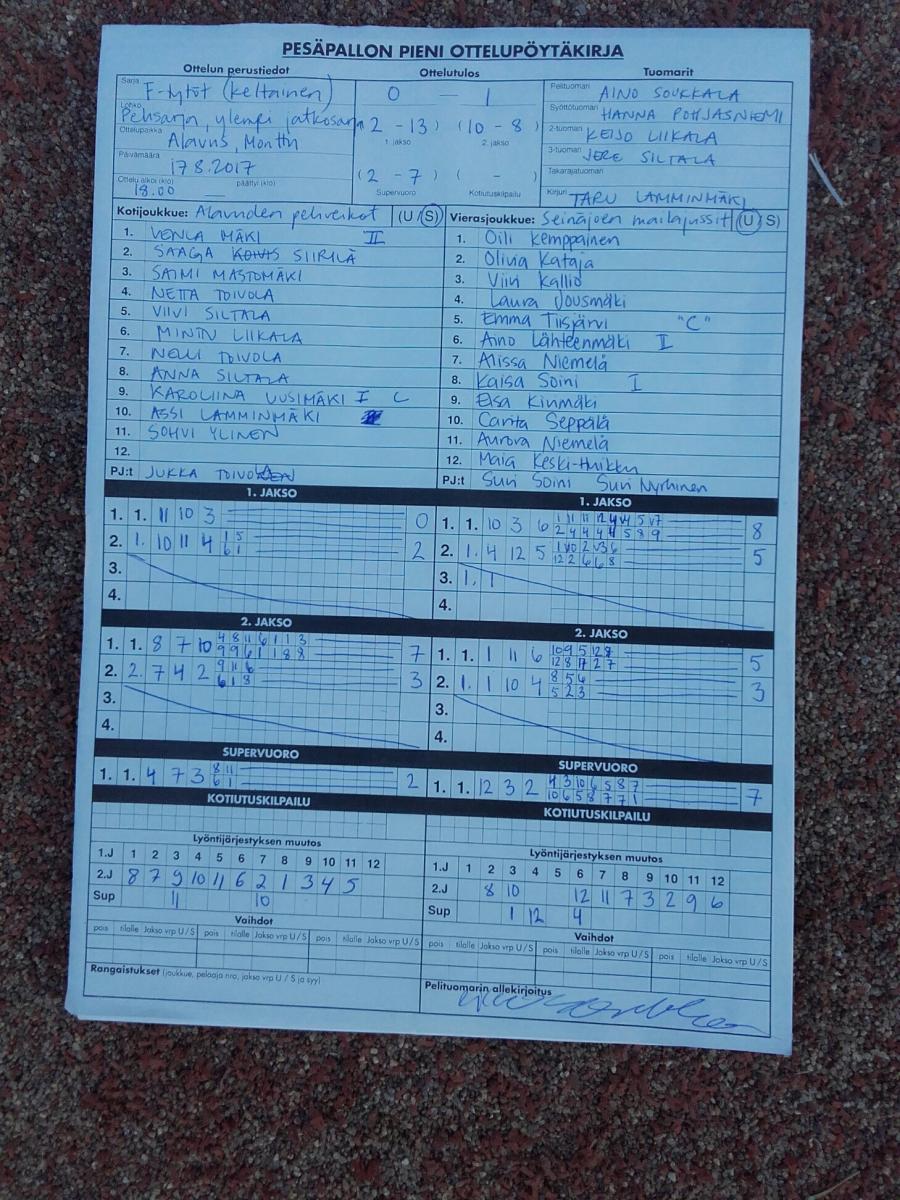 PESÄPALLON PIENI OTTELUPÖYTÄKIRJA
Ottelun perustiedot Ottelutulos Tuomarit
Sarja F-tytöt (keltainen)
Lohko
Ottelupaikka Alavus, Monttu
Päivämäärä 17.8.2017
Ottelu alkoi (klo) 18.00 päättyi (klo)
0 — 1
(2 - 13) (10 - 8)
1. jakso 2. jakso
(2 - 7) ( - )
Supervuoro Kotiutuskilpailu
Pelituomari AINO SOUKKALA
Syöttötuomari HANNA POHJASNIEMI
2-tuomari KEIJO LIIKALA
3-tuomari JERE SILTALA
Takarajatuomari
Kirjuri TARU LAMMINMÄKI
Kotijoukkue: Alavuden peliveikot (U/S)
1. VENLA MÄKI II
2. SAAGA SIIRILÄ
3. SAIMI MASTOMÄKI
4. NETTA TOIVOLA
5. VIIVI SILTALA
6. MINTN LIIKALA
7. NELLI TOIVOLA
8. ANNA SILTALA
9. KAROLIINA UUSIMÄKI I C
10. ASSI LAMMINMÄKI
11. SOHVI YLINEN
12.
PJ:t JUKKA
Vierasjoukkue: Seinäjoen mailajussit (U/S)
1. Oili Kemppainen
2. Olivia Kataja
3. Viivi Kallio
4. Laura Jousmäki
5. Emma Tiisjärvi "C"
6. Aino Lähteenmäki II
7. Alissa Niemelä
8. Kaisa Soini I
9. Elsa Kinmäki
10. Carita Seppälä
11. Aurora Niemelä
12. Maia Keski-Huikku
PJ:t Suvi Soini Suvi Nyrhinen
1. JAKSO
1. 1. 11 10 3 0
2. 1. 10 11 4 1 5 2
6 1
3.
4.
1. JAKSO
1. 1. 10 3 6 8
2. 1. 4 12 5 5
3. 1. 1
4.
2. JAKSO
1. 1. 8 7 10 4 8 11 6 1 1 3 7
9 9 6 1 1 8 8
2. 2. 7 4 2 9 11 6 3
6 1 8
3.
4.
2. JAKSO
1. 1. 1 11 6 5
2. 1. 1 10 4 8 5 6 3
5 2 3
3.
4.
SUPERVUORO
1. 1. 4 7 3 8 11 2
6 1
SUPERVUORO
1. 1. 12 3 2 4 3 10 6 5 8 7 7
10 6 5 8 7 7 1
KOTIUTUSKILPAILU
KOTIUTUSKILPAILU
Lyöntijärjestyksen muutos
1.J 1 2 3 4 5 6 7 8 9 10 11 12
2.J 8 7 9 10 11 6 2 1 3 4 5
Sup 11 10
Lyöntijärjestyksen muutos
1.J 1 2 3 4 5 6 7 8 9 10 11 12
2.J 8 10 12 11 7 3 2 9 6
Sup 1 12 4
Vaihdot
pois tilalle Jakso vrp U/S pois tilalle Jakso vrp U/S pois tilalle Jakso vrp U/S
Vaihdot
pois tilalle Jakso vrp U/S pois tilalle Jakso vrp U/S pois tilalle Jakso vrp U/S
Rangaistukset (joukkue, pelaaja nro, jakso vrp U / S ja syy)
Pelituomarin allekirjoitus